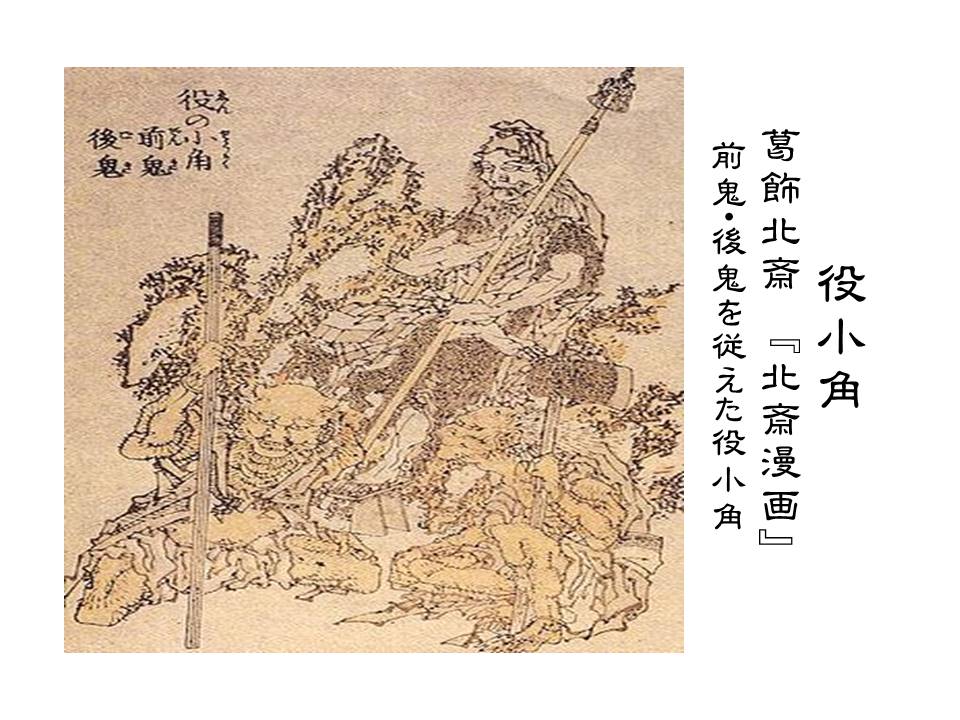 役小角
葛飾北斎 『北斎漫画』
前鬼・後鬼を従えた役小角
役の小角
前鬼
後鬼